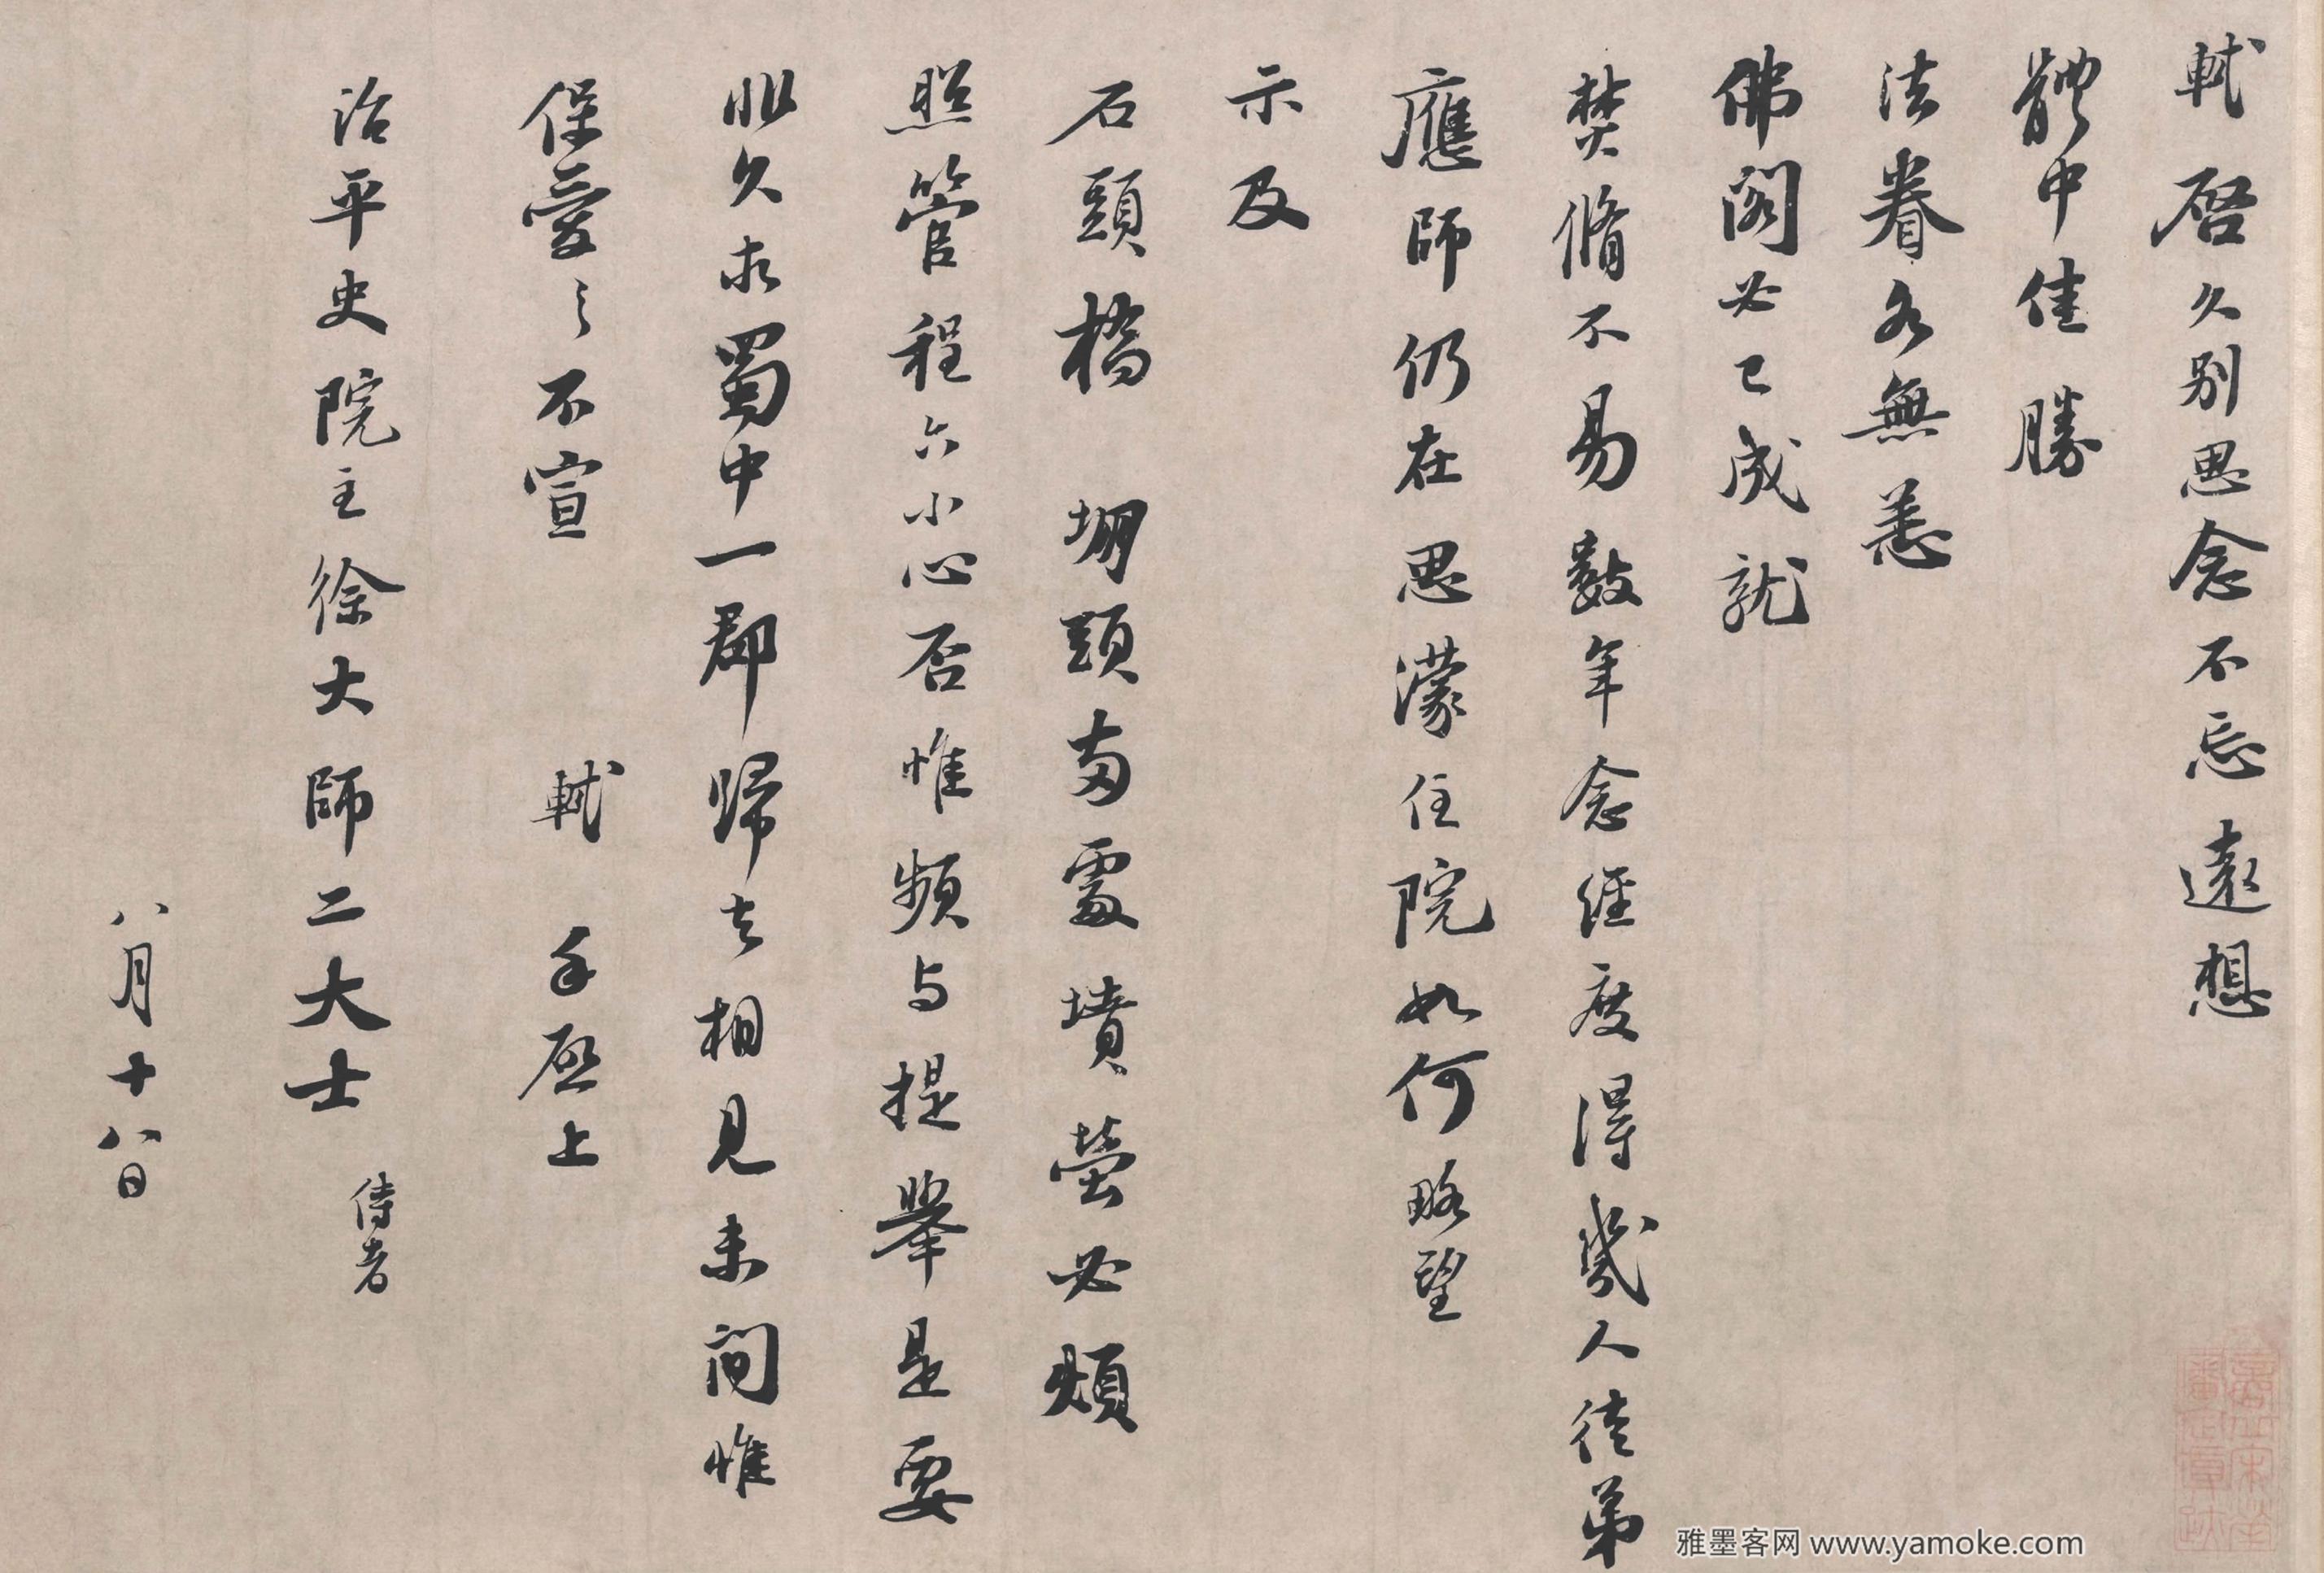 軾啓久别思念不忘遠想
體中佳勝
法眷各無恙
佛閣必已成就
焚脩不易數年念經度得幾人徒弟
應師仍在思濛住院如何略望
示及
石頭橋 堋頭兩處墳塋必煩
照管程六小心否惟頻与提舉是要
非久求蜀中一郡歸去相見未間惟
保愛之不宣 軾 手啓上
治平史院主徐大師二大士 侍者
八月十八日
雅墨客网 www.yamoke.com